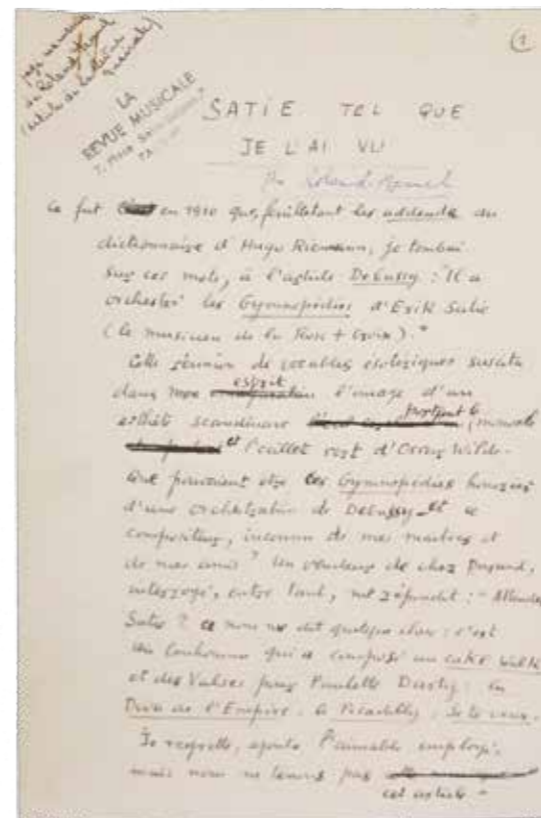 1
LA
REVUE MUSICALE
SATIE TEL QUE
JE L'AI VU
Par Roland-Manuel
Ce fut en 1910 que, feuilletant les addenda du
dictionnaire d'Hugo Riemann, je tombai
sur ces mots, à l'article Debussy : "Il a
orchestré les Gymnopédies d'Erik Satie
(le musicien de la Rose + Croix)."
Cette réunion de vocables ésotériques suscita
dans mon esprit l'image d'un
esthète scandinave portant le monocle
et l'oeillet vert d'Oscar Wilde.
Que pouvaient être ces Gymnopédies
d'une orchestration de Debussy et ce
compositeur, inconnu de mes maîtres et
de mes amis ? Un vendeur de chez Durand,
interrogé, entre tant, me répondit : "Attendez
Satie ? Ce nom me dit quelque chose : c'est
un bonhomme qui a composé un cake walk
et des Valses pour Paulette Darty : La
Diva de l'Empire. Le Picadilly. Je te veux.
Je regrette, ajouta l'aimable employé,
mais nous ne tenons pas
cet article"